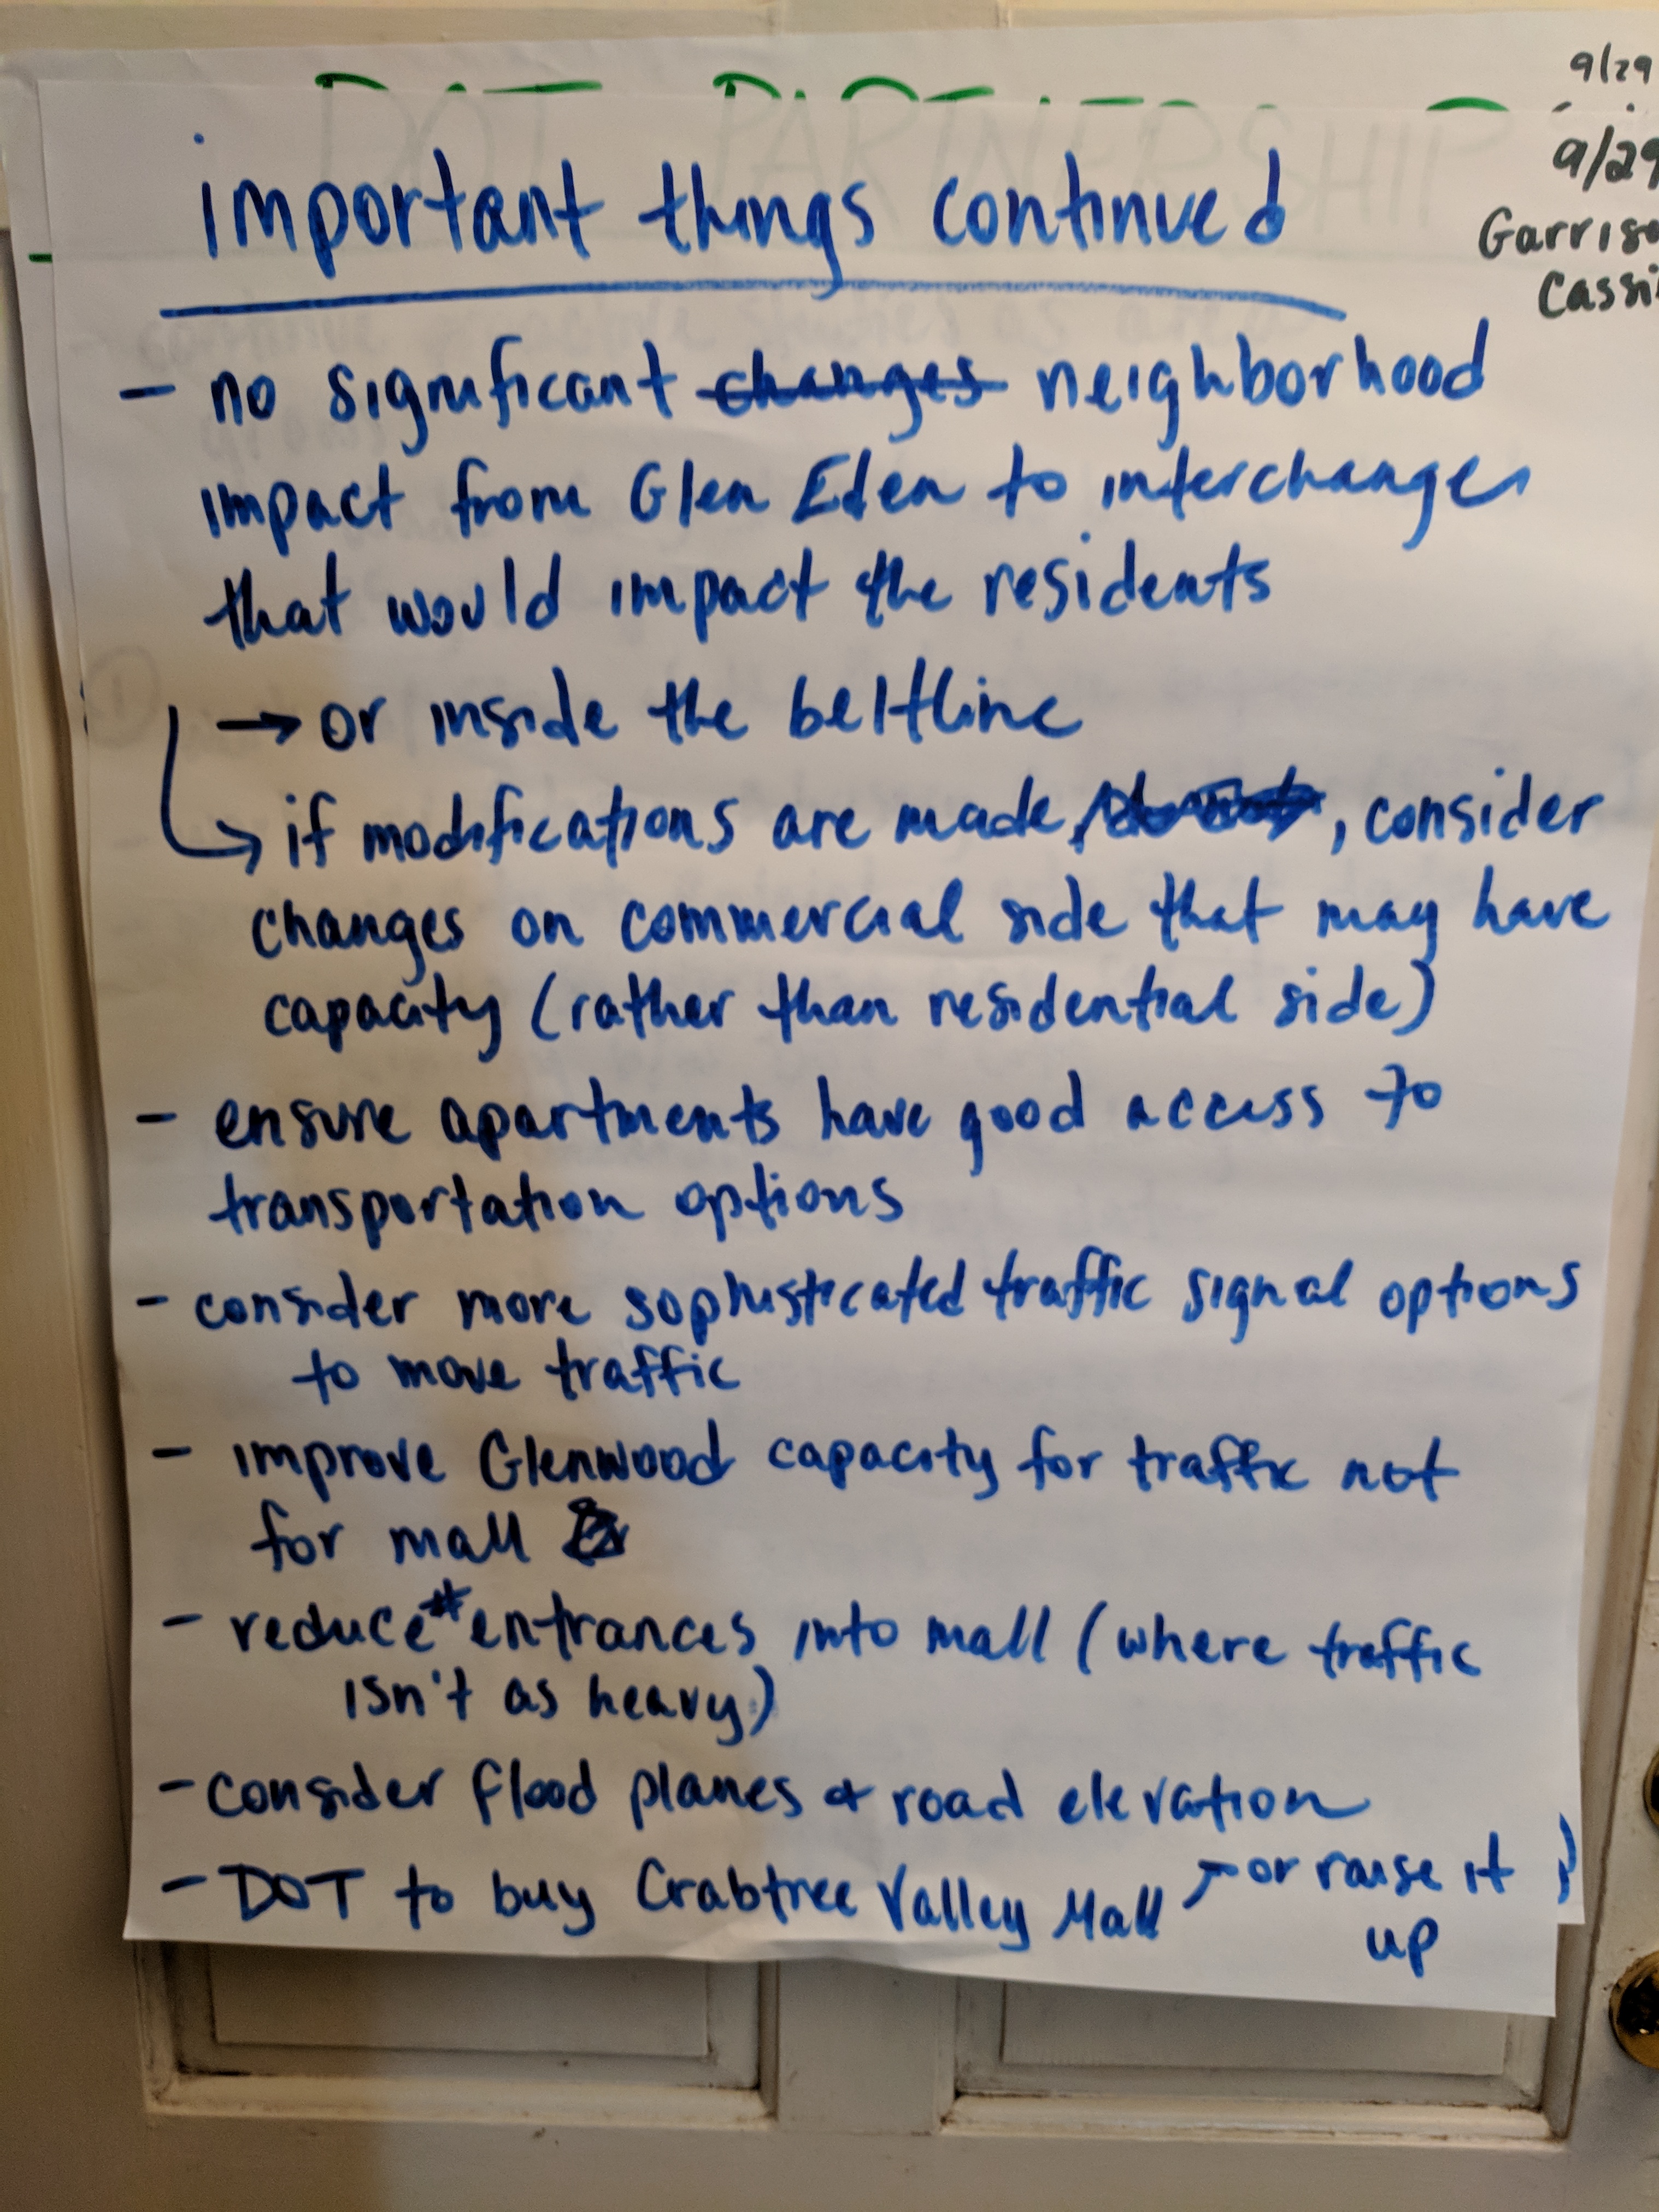 9/29
DOT PARTNERSHIP
9/29
important things continued
Garriso
Cassi
- no significant changes neighborhood
impact from Glen Eden to interchange
that would impact the residents
→ or inside the beltline
↳ if modifications are made, consider
changes on commercial side that may have
capacity (rather than residential side)
- ensure apartments have good access to
transportation options
- consider more sophisticated traffic signal options
to move traffic
- improve Glenwood capacity for traffic not
for mall
- reduce # entrances into mall (where traffic
isn't as heavy)
- consider flood planes & road elevation
- DOT to buy Crabtree Valley Mall → or raise it
up